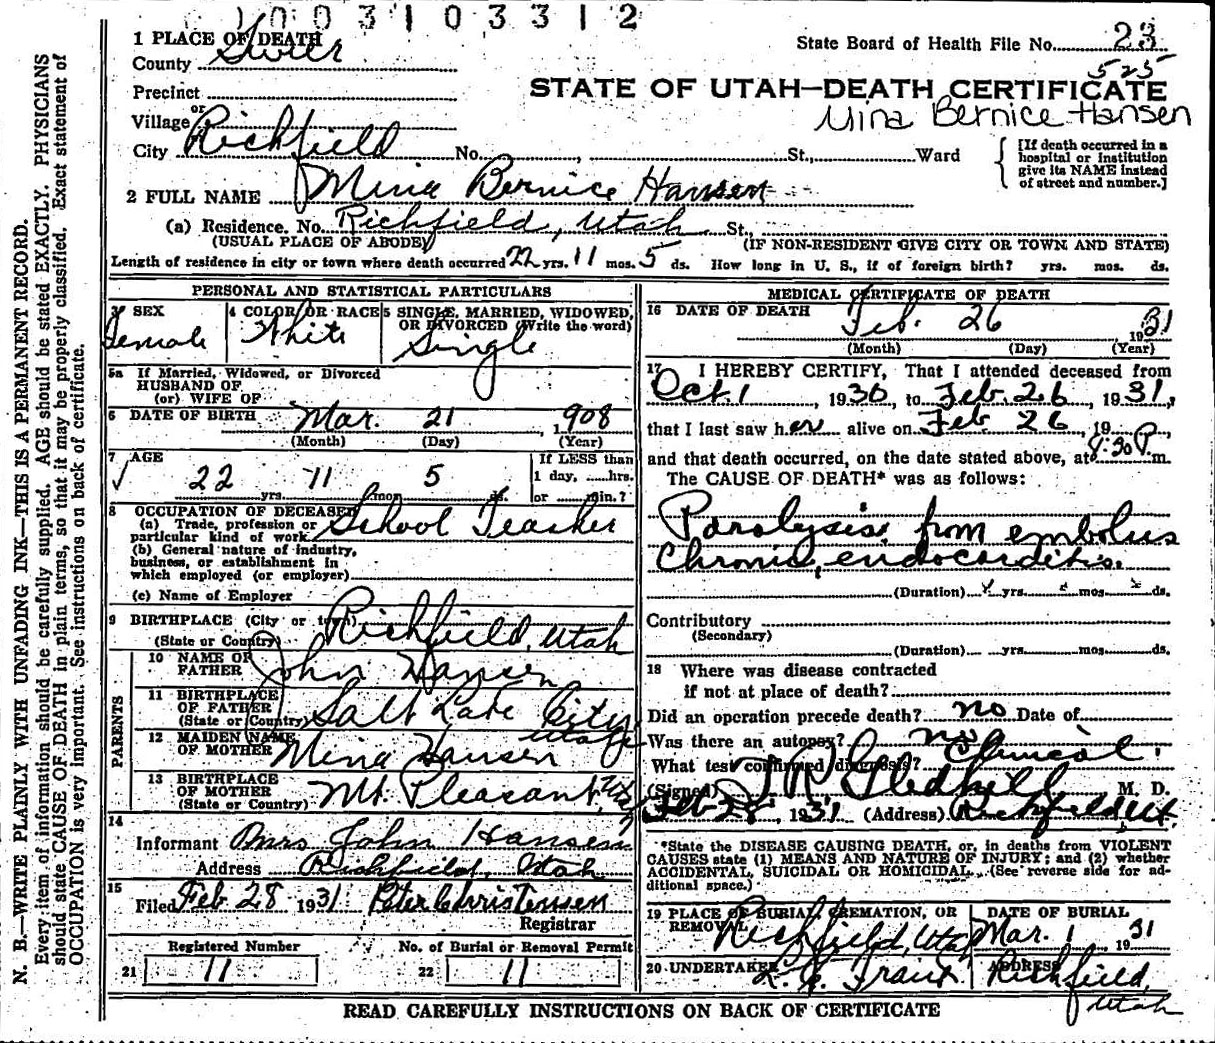 1003103312
1 PLACE OF DEATH
County Sevier
State Board of Health File No. 23
525
Precinct
STATE OF UTAH—DEATH CERTIFICATE
or
Village
Mina Bernice Hansen
City Richfield No. , St., Ward
{ [If death occurred in a
hospital or institution
give its NAME instead
of street and number.]
2 FULL NAME Mina Bernice Hansen
(a) Residence. No. Richfield, Utah St.,
(USUAL PLACE OF ABODE) (IF NON-RESIDENT GIVE CITY OR TOWN AND STATE)
Length of residence in city or town where death occurred 22 yrs. 11 mos. 5 ds. How long in U. S., if of foreign birth? yrs. mos. ds.
PERSONAL AND STATISTICAL PARTICULARS
3 SEX 4 COLOR OR RACE 5 SINGLE, MARRIED, WIDOWED,
OR DIVORCED (Write the word)
Female White Single
5a If Married, Widowed, or Divorced
HUSBAND OF
(or) WIFE OF
6 DATE OF BIRTH Mar. 21, 1908
(Month) (Day) (Year)
7 AGE If LESS than
1 day, ......hrs.
22 yrs. 11 mos. 5 ds. or ......min.?
8 OCCUPATION OF DECEASED
(a) Trade, profession or
particular kind of work School Teacher
(b) General nature of industry,
business, or establishment in
which employed (or employer)
(c) Name of Employer
9 BIRTHPLACE (City or town)
(State or Country) Richfield, Utah
PARENTS
10 NAME OF
FATHER John Hansen
11 BIRTHPLACE
OF FATHER
(State or Country) Salt Lake City
Utah
12 MAIDEN NAME
OF MOTHER Mina Hansen
13 BIRTHPLACE
OF MOTHER
(State or Country) Mt. Pleasant, Utah
14
Informant Mrs John Hansen
Address Richfield, Utah
15
Filed Feb 28 1931 Peter Christensen
Registrar
Registered Number No. of Burial or Removal Permit
21 11 22 11
MEDICAL CERTIFICATE OF DEATH
16 DATE OF DEATH
Feb. 26 1931
(Month) (Day) (Year)
17 I HEREBY CERTIFY, That I attended deceased from
Oct 1, 1930, to Feb. 26, 1931,
that I last saw her alive on Feb 26, 19 ,
and that death occurred, on the date stated above, at 4:30 P. m.
The CAUSE OF DEATH* was as follows:
Paralysis from embolus
Chronic endocarditis.
(Duration) yrs. mos. ds.
Contributory
(Secondary)
(Duration) yrs. mos. ds.
18 Where was disease contracted
if not at place of death?
Did an operation precede death? no Date of
Was there an autopsy? no
What test confirmed diagnosis? Clinical.
(Signed) Gledhill M. D.
Feb 28, 1931 (Address) Richfield Ut.
*State the DISEASE CAUSING DEATH, or, in deaths from VIOLENT
CAUSES state (1) MEANS AND NATURE OF INJURY; and (2) whether
ACCIDENTAL, SUICIDAL OR HOMICIDAL. (See reverse side for ad-
ditional space.)
19 PLACE OF BURIAL, CREMATION, OR
REMOVAL DATE OF BURIAL
Richfield, Utah Mar. 1, 1931
20 UNDERTAKER ADDRESS
Richfield,
Utah
READ CAREFULLY INSTRUCTIONS ON BACK OF CERTIFICATE
N. B.—WRITE PLAINLY WITH UNFADING INK—THIS IS A PERMANENT RECORD.
Every item of information should be carefully supplied. AGE should be stated EXACTLY. PHYSICIANS
should state CAUSE OF DEATH in plain terms, so that it may be properly classified. Exact statement of
OCCUPATION is very important. See instructions on back of certificate.